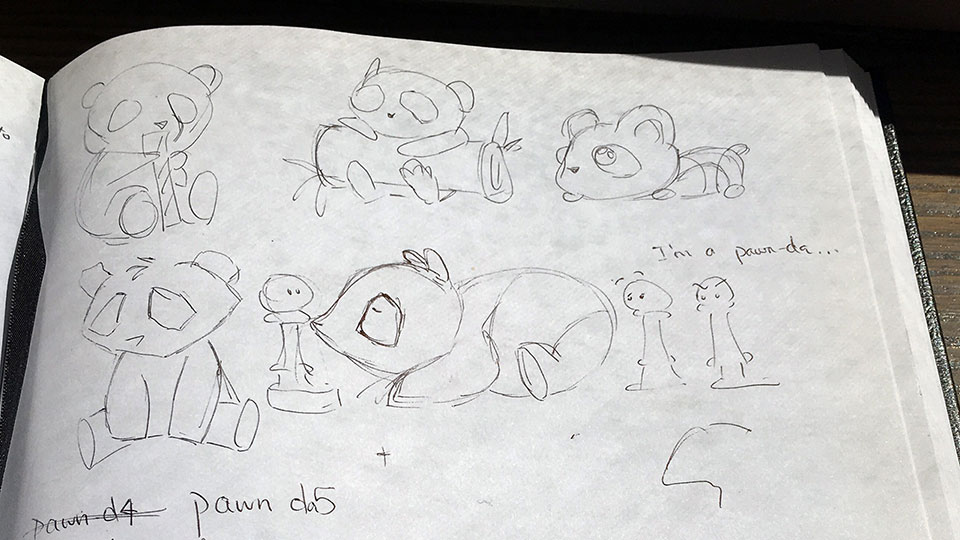 I'm a pawn-da...
pawn d4 pawn da5